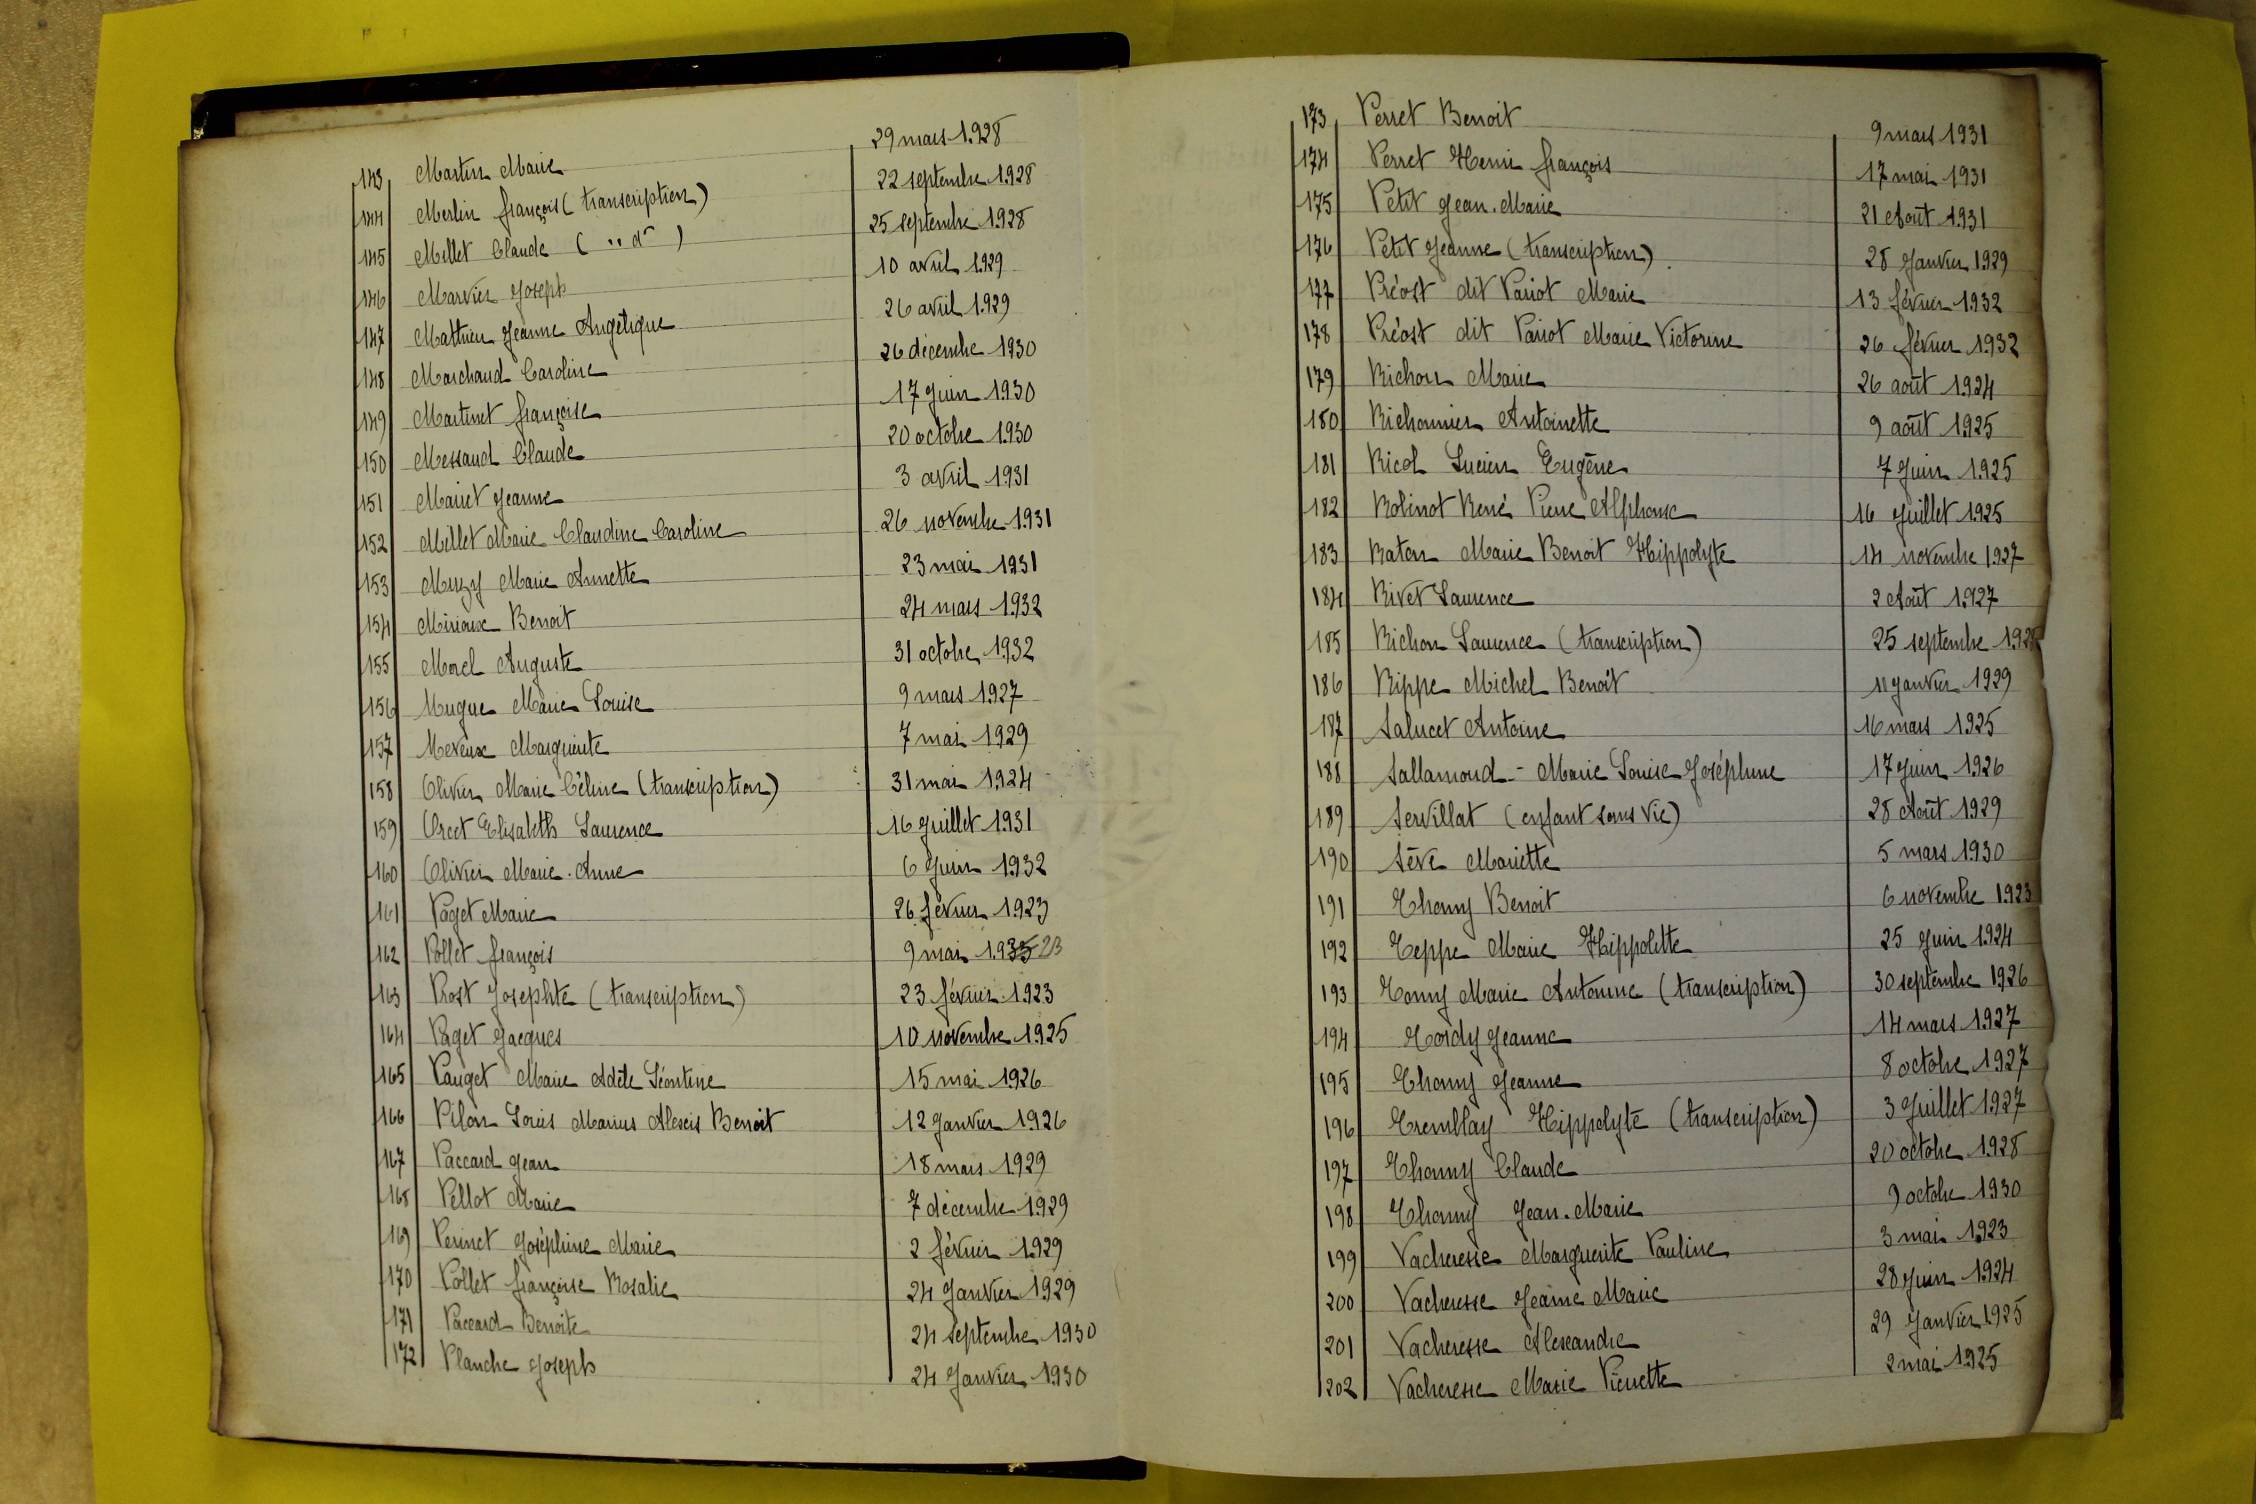 143 Martin Marie 29 mars 1928
144 Merlin françois (transcription) 22 septembre 1928
145 Millet Claude ( " d° ) 25 septembre 1928
146 Marvier Joseph 10 avril 1929
147 Mathieu Jeanne Angélique 26 avril 1929
148 Marchand Caroline 26 décembre 1930
149 Martinet françoise 17 Juin 1930
150 Messaud Claude 20 octobre 1930
151 Mairet Jeanne 3 avril 1931
152 Millet Marie Claudine Caroline 26 novembre 1931
153 Muzy Marie Annette 23 mai 1931
154 Mirioux Benoit 24 mars 1932
155 Morel Auguste 31 octobre 1932
156 Mugue Marie Louise 9 mars 1927
157 Mereux Marguerite 7 mai 1929
158 Olivier Marie Céline (transcription) 31 mai 1924
159 Orcet Elisabeth Laurence 16 Juillet 1931
160 Olivier Marie-Anne 6 Juin 1932
161 Paget Marie 26 février 1923
162 Pollet françois 9 mai 1935 23
163 Prost Josephte (transcription) 23 février 1923
164 Paget Jacques 10 novembre 1925
165 Pauget Marie Adèle Léontine 15 mai 1926
166 Pilon Louis Marius Alexis Benoit 12 Janvier 1926
167 Paccard Jean 18 mars 1929
168 Pellot Marie 7 décembre 1929
169 Perinet Joséphine Marie 2 février 1929
170 Pollet françoise Rosalie 24 Janvier 1929
171 Paccard Benoite 24 septembre 1930
172 Planche Joseph 24 Janvier 1930
173 Perret Benoit 9 mars 1931
174 Perret Henri françois 17 mai 1931
175 Petit Jean-Marie 21 Août 1931
176 Petit Jeanne (transcription) 28 Janvier 1929
177 Préost dit Pariot Marie 13 février 1932
178 Préost dit Pariot Marie Victorine 26 février 1932
179 Richon Marie 26 août 1924
180 Richonnier Antoinette 9 août 1925
181 Ricol Lucien Eugène 7 Juin 1925
182 Robinot René Pierre Alphonse 16 Juillet 1925
183 Raton Marie Benoit Hippolyte 14 novembre 1927
184 Rivet Laurence 2 Août 1927
185 Richon Laurence (transcription) 25 septembre 1928
186 Rippe Michel Benoît 11 Janvier 1929
187 Salucet Antoine 16 mars 1925
188 Sallamond - Marie Louise Joséphine 17 Juin 1926
189 Servillat (enfant sans vie) 28 Août 1929
190 Sève Mariette 5 mars 1930
191 Thomy Benoit 6 novembre 1923
192 Teppe Marie Hippolitte 25 Juin 1924
193 Tomy Marie Antonine (transcription) 30 septembre 1926
194 Tordy Jeanne 14 mars 1927
195 Thomy Jeanne 8 octobre 1927
196 Tremblay Hippolyte (transcription) 3 Juillet 1927
197 Thomy Claude 20 octobre 1928
198 Thomy Jean-Marie 9 octobre 1930
199 Vacheresse Marguerite Pauline 3 mai 1923
200 Vacheresse Jeanne Marie 28 Juin 1924
201 Vacheresse Alexandre 29 Janvier 1925
202 Vacheresse Marie Pierrette 2 mai 1925